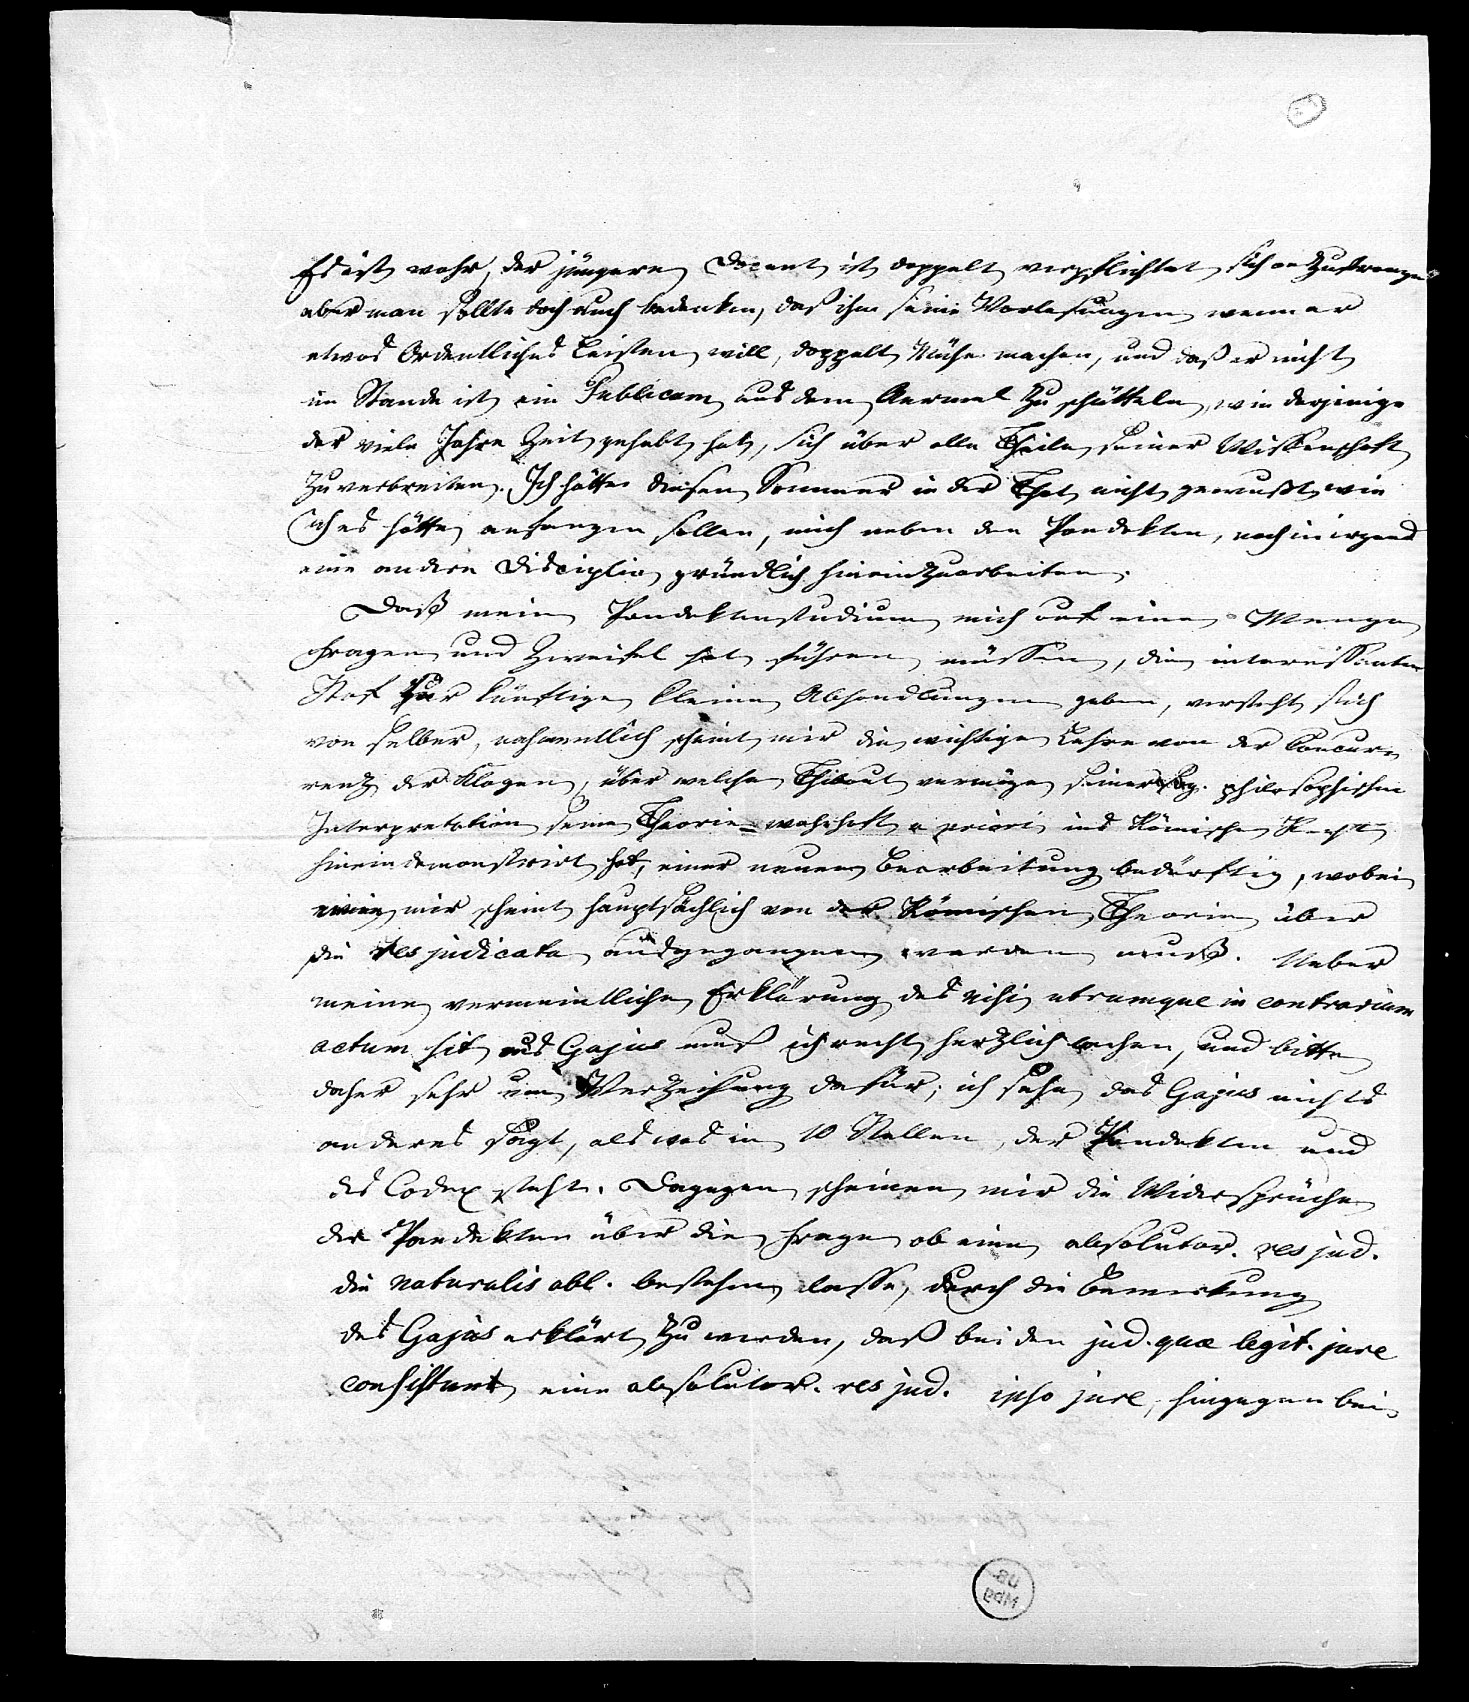 Es ist wahr, der jüngere Docent ist doppelt verpflichtet sich anzustrengen
aber man sollte doch auch bedenken, daß ihm seine Vorlesungen wenn er
etwas Ordentliches leisten will, doppelt Mühe machen, und daß er nicht
im Stande ist ein Publicum aus dem Aermel zu schütteln, wie derjenige
der viele Jahre Zeit gehabt hat, sich über alle Theile seiner Wissenschaft
zu verbreiten. Ich hätte diesen Sommer in der That nicht gewußt wie
ich es hätte anfangen sollen, mich neben den Pandekten, noch in irgend
eine andere Disciplin gründlich hineinzuarbeiten.
Daß mein Pandektenstudium mich auf eine Menge
Fragen und Zweifel hat führen müssen, die interessanten
Stof für künftige kleine Abhandlungen geben, versteht sich
von selber, nahmentlich scheint mir die wichtige Lehre von der Concur-
renz der Klagen, über welche Thibaut vermöge seiner sog. philosophischen
Interpretation seine Theorie wahrhaft a priori ins Römische Recht
hinein demonstrirt hat, einer neuen Bearbeitung bedürftig, wobei
wie mir scheint hauptsächlich von der Römischen Theorie über
die res judicata ausgegangen werden muß. Ueber
meine vermeintliche Erklärung des nisi utrumque in contrarium
actum sit aus Gajus muß ich recht herzlich lachen, und bitte
daher sehr um Verzeihung dafür; ich sehe das Gajus nichts
anderes sagt, als was in 10 Stellen der Pandekten und
des Codex steht. Dagegen scheinen mir die Widersprüche
der Pandekten über die Frage ob eine absolutor. res jud.
die naturalis obl. bestehen lasse, durch die Bemerkung
des Gajus erklärt zu werden, daß bei den jud. quae legit. jure
consistunt eine absolutor. res jud. ipso jure, hingegen bei